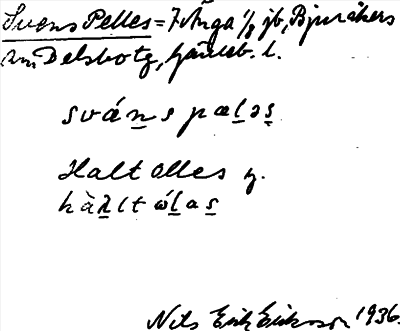 Svens Pelles = 7 Änga 1/8 jb, Bjuråkers
sn Delsbo tg, Gävleb. l.
sváns pæləs
Halt Olles g.
hàlt ólas
Nils Erik Eriksson 1936.